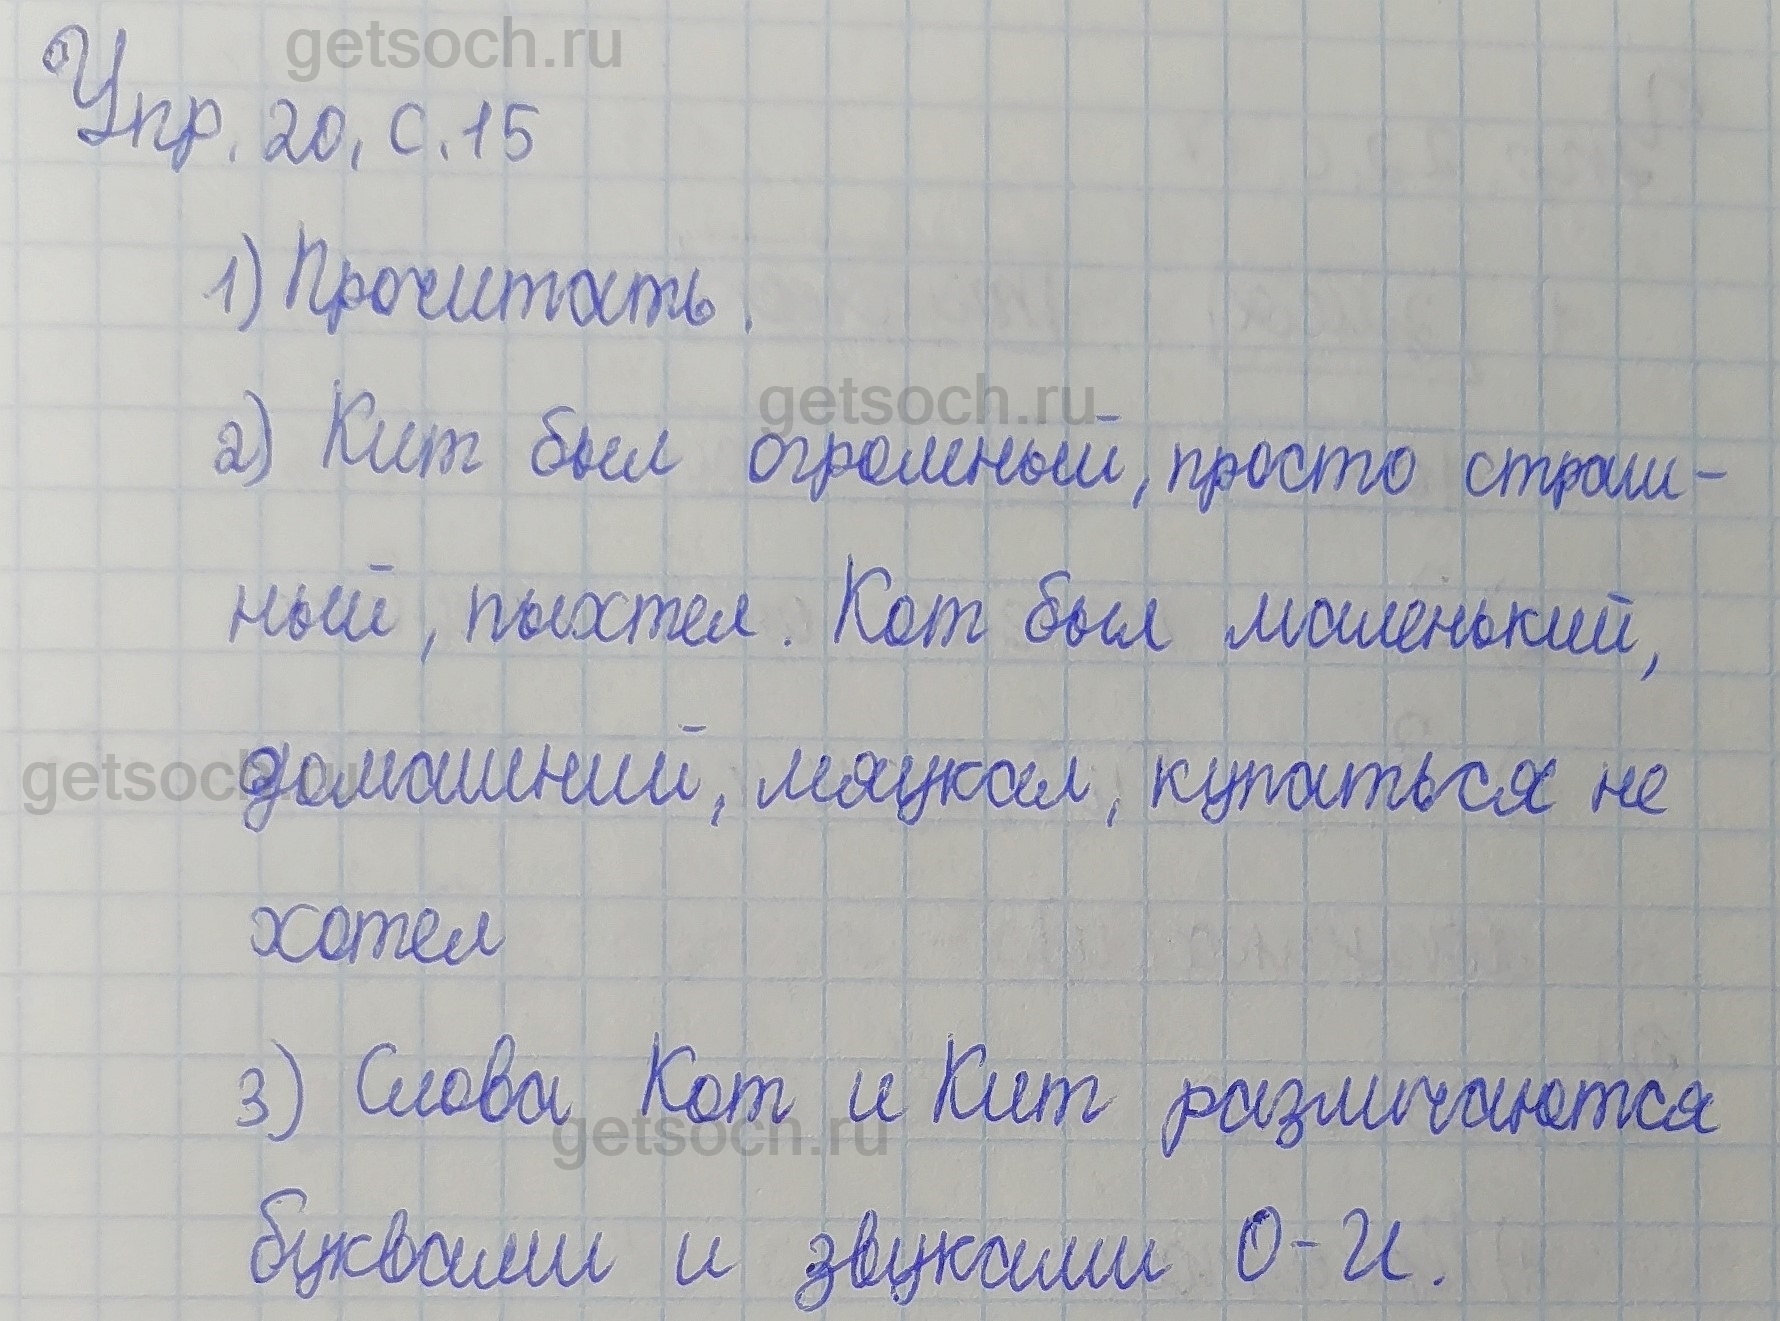 getsoch.ru
Упр. 20, с. 15
1) Прочитать.
getsoch.ru
2) Кит был огромный, просто страш-
ный, пыхтел. Кот был маленький,
getsoch.ru
домашний, мяукал, купаться не
хотел
3) Слова Кот и Кит различаются
getsoch.ru
буквами и звуками О-И.